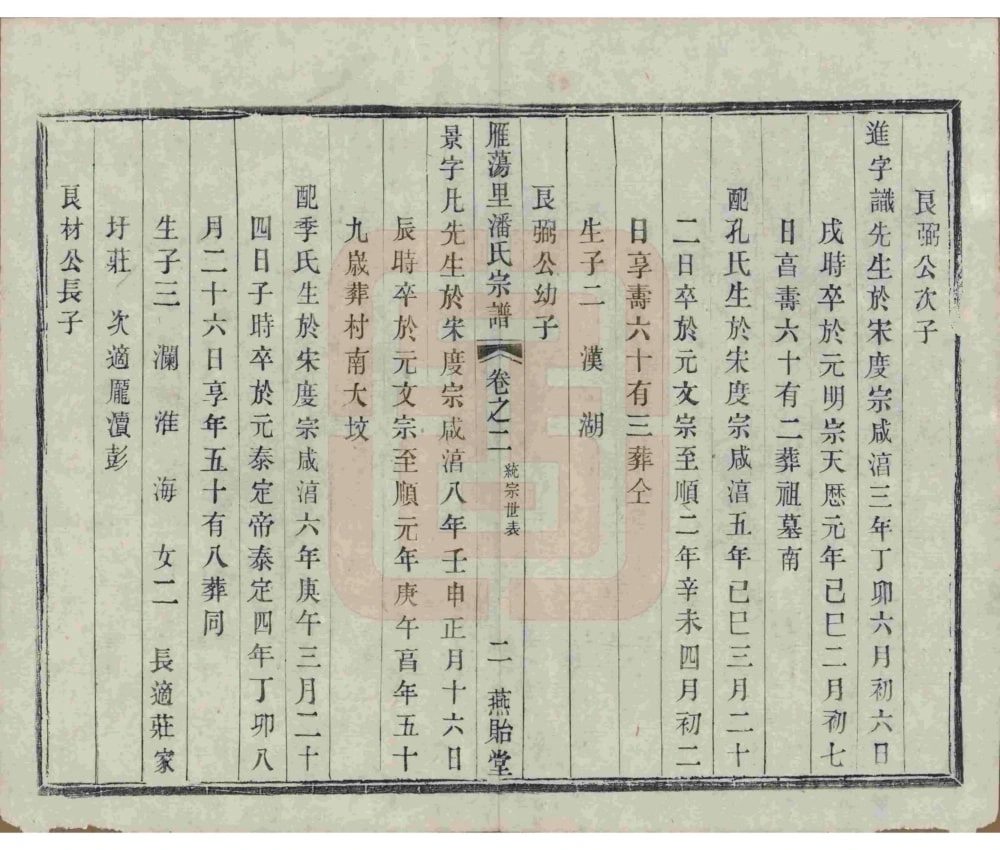 良弼公次子
進字識先生於宋度宗咸湻三年丁卯六月初六日
戌時卒於元明宗天厯元年己巳二月初七
日亯壽六十有二葬祖墓南
配孔氏生於宋度宗咸湻五年己巳三月二十
二日卒於元文宗至順二年辛未四月初二
日享壽六十有三葬仝
生子二 漢 湖
良弼公幼子
雁蕩里潘氏宗譜 卷之二 統宗世表 二 燕貽堂
景字凡先生於宋度宗咸湻八年壬申正月十六日
辰時卒於元文宗至順元年庚午亯年五十
九嵗葬村南大坟
配季氏生於宋度宗咸湻六年庚午三月二十
四日子時卒於元泰定帝泰定四年丁卯八
月二十六日享年五十有八葬同
生子三 瀾 淮 海 女二 長適莊家
圩莊 次適龎瀆彭
良材公長子